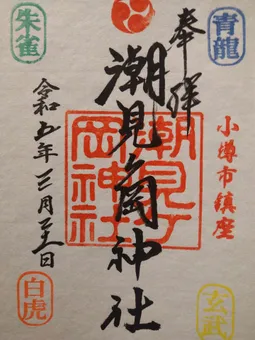 青龍
奉拝
小樽市鎮座
玄武
潮見岡神社
潮見ヶ
岡神社
朱雀
令和五年三月
白虎